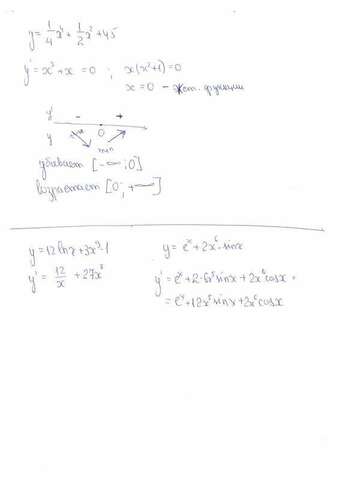 y = 1/4 x⁴ + 1/2 x² + 45
y' = x³ + x = 0 ; x(x²+1) = 0
x = 0 – экст. функции
y' - +
y 0
min
убывает [-∞; 0]
возрастает [0; +∞]
y = 12 ln x + 3x⁹ - 1
y' = 12/x + 27x⁸
y = eˣ + 2x⁶ · sin x
y' = eˣ + 2·6x⁵ sin x + 2x⁶ cos x =
= eˣ + 12x⁵ sin x + 2x⁶ cos x